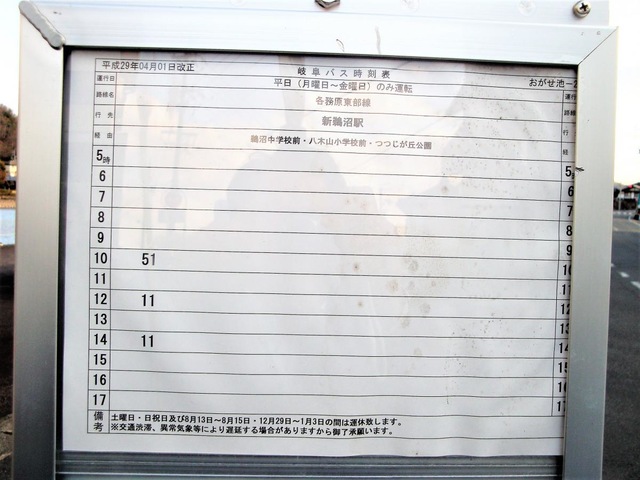 平成29年04月01日改正
岐阜バス時刻表
おがせ池-2
運行日 平日（月曜日～金曜日）のみ運転 運行
路線名 各務原東部線 路線
行先 新鵜沼駅 行
経由 鵜沼中学校前・八木山小学校前・つつじが丘公園 経
5時 5
6 6
7 7
8 8
9 9
10 51 10
11 11
12 11 12
13 13
14 11 14
15 15
16 16
17
備考
土曜日・日祝日及び8月13日～8月15日・12月29日～1月3日の間は運休致します。
※交通渋滞、異常気象等により遅延する場合がありますから御了承願います。